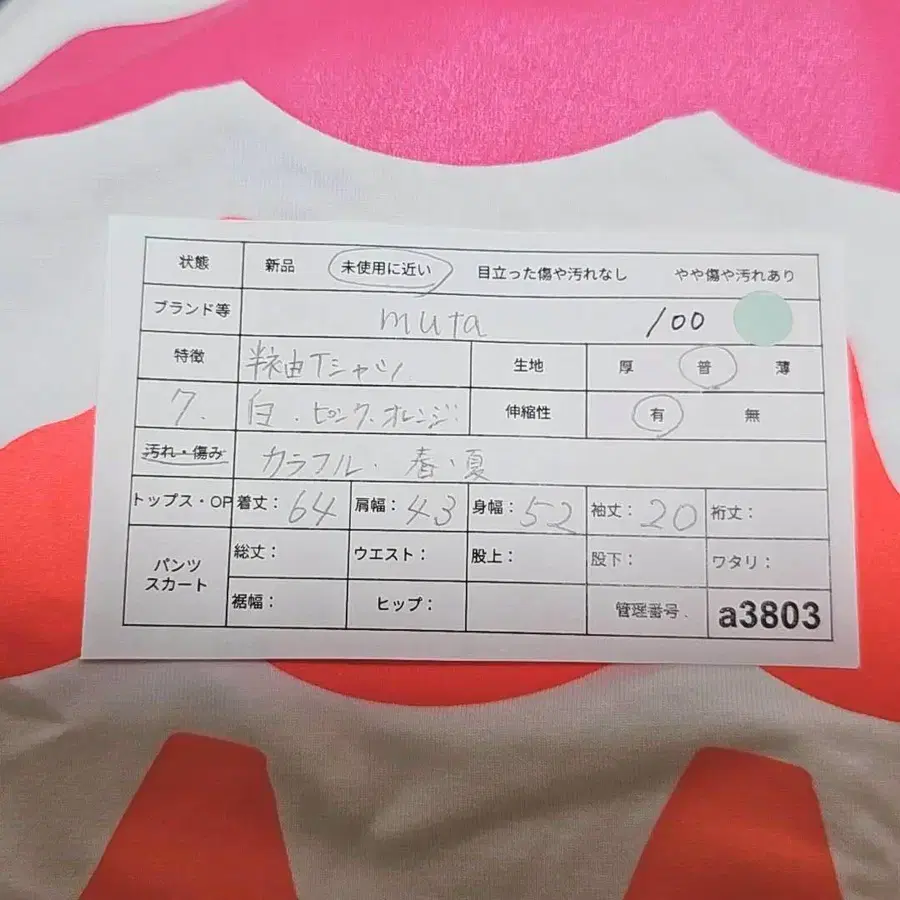 状態 新品 未使用に近い 目立った傷や汚れなし やや傷や汚れあり
ブランド等 muta /00
特徴 半袖Tシャツ 生地 厚 普 薄
7. 白.ピンク.オレンジ 伸縮性 有 無
汚れ・傷み カラフル.春.夏
トップス・OP 着丈:64 肩幅:43 身幅:52 袖丈:20 裄丈:
パンツ スカート 総丈: ウエスト: 股上: 股下: ワタリ:
裾幅: ヒップ: 管理番号. a3803